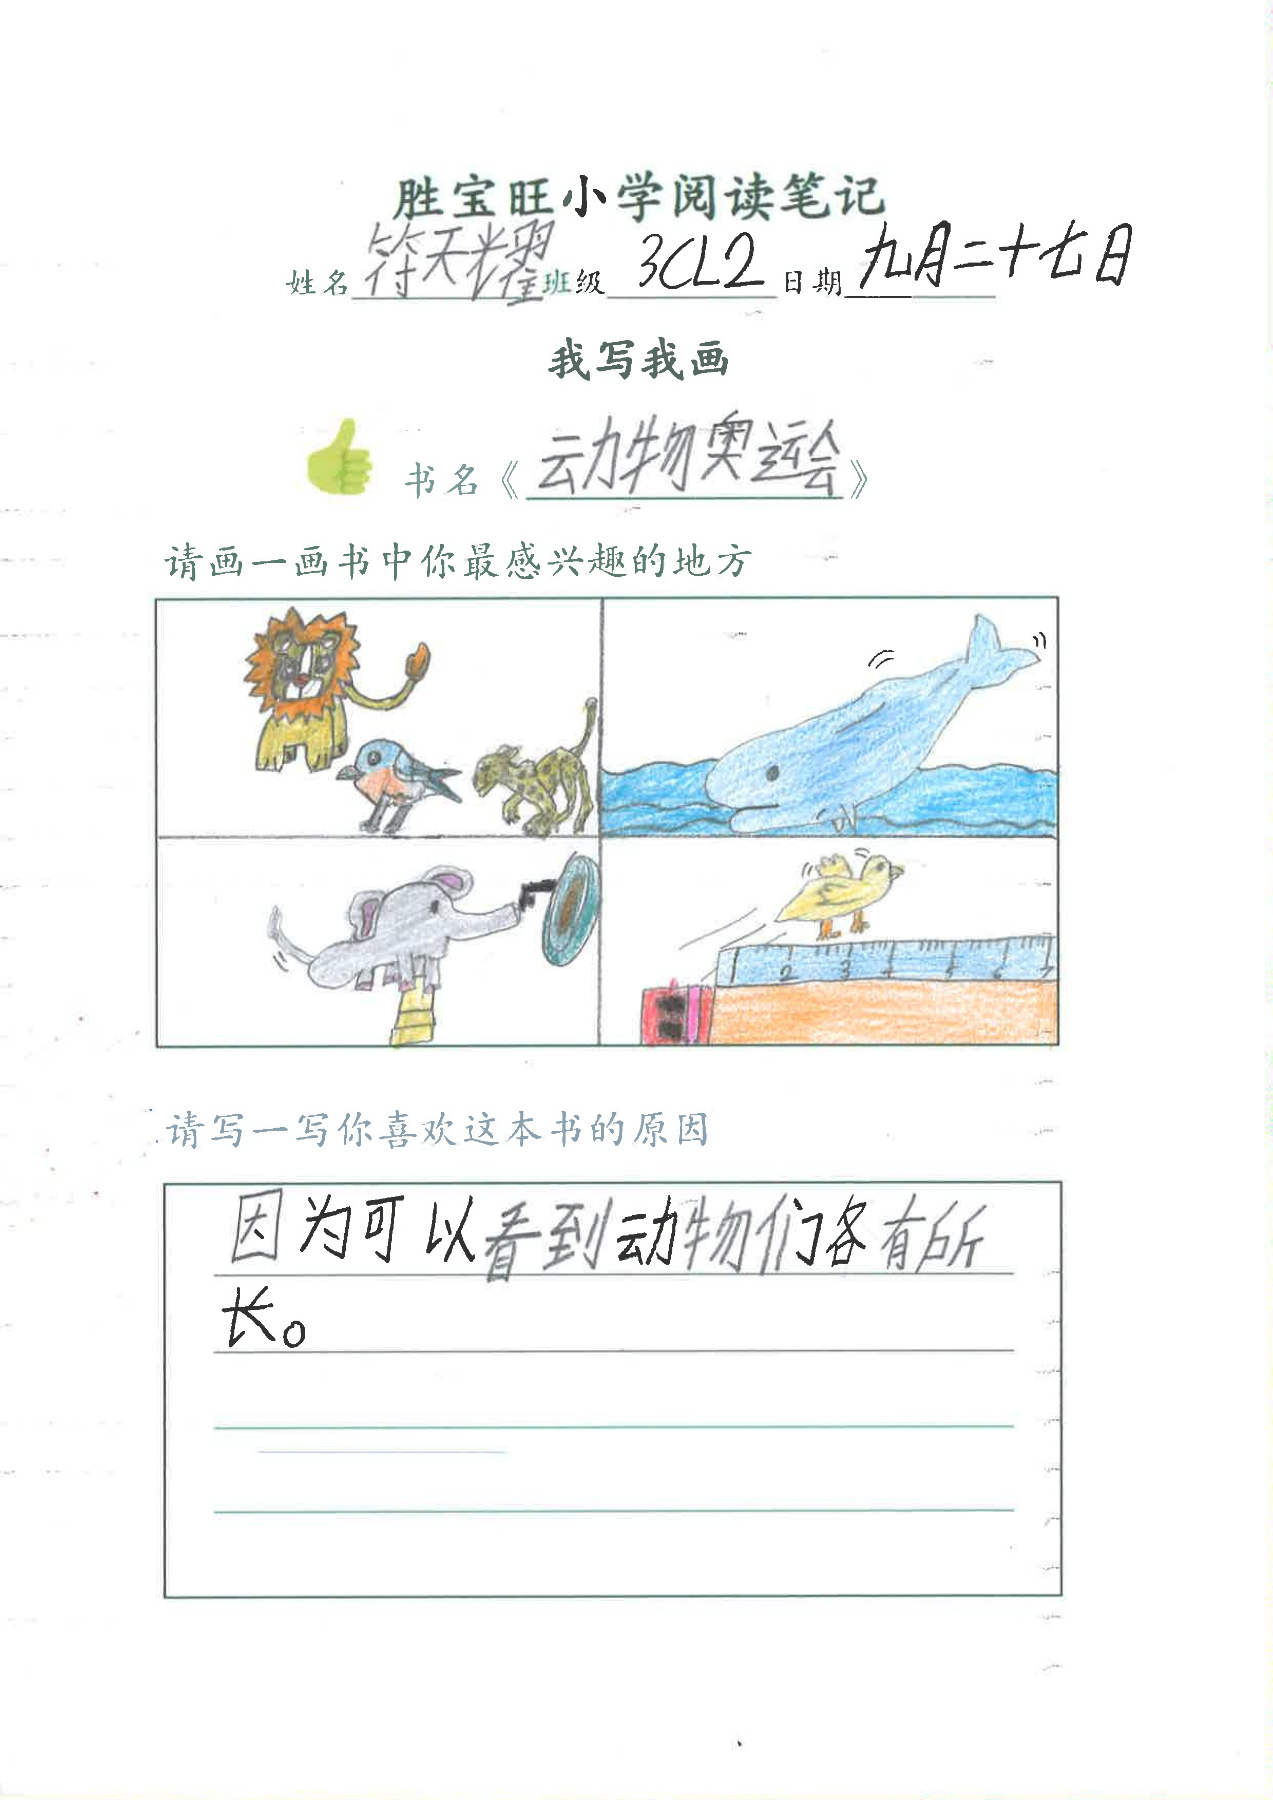 胜宝旺小学阅读笔记
姓名 符天耀 班级 3CL2 日期 九月二十七日
我写我画
书名《动物奥运会》
请画一画书中你最感兴趣的地方
1 2 3 4 5 6 7
请写一写你喜欢这本书的原因
因为可以看到动物们各有所
长。